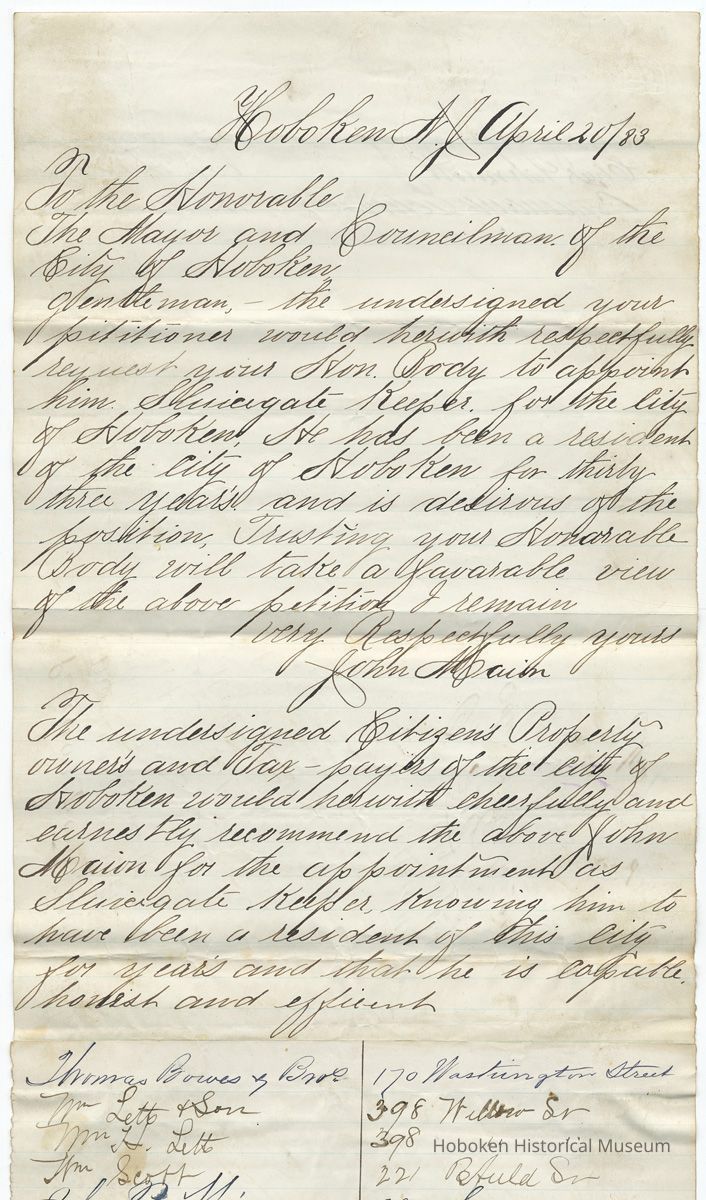 Hoboken N.J April 20/83
To the Honorable
The Mayor and Councilman. of the
City of Hoboken
Gentleman, - the undersigned your
pititioner would herwith respectfully
request your Hon. Body to appoint
him. Sluicegate Keeper. for the City
of Hoboken. He has been a resident
of the city of Hoboken for thirty
three year's. and is desirous of the
position, Trusting your Honorable
Body will take a favarable view
of the above petition I remain
very Respectfully yours
John
The undersigned Citizen's Property
owner's and Tax-payers of the city of
Hoboken would herwith cheerfully and
earnestly recommend the above John
for the appointment as
Sluicegate Keeper, Knowing him to
have been a resident of this city
for year's and that he is capable.
honest and efficent
Thomas Bowes & Bro. 170 Washington Street
Wm Lett & Son 398 Willow St
Wm H. Lett 398
Wm Scott 221 St
Hoboken Historical Museum